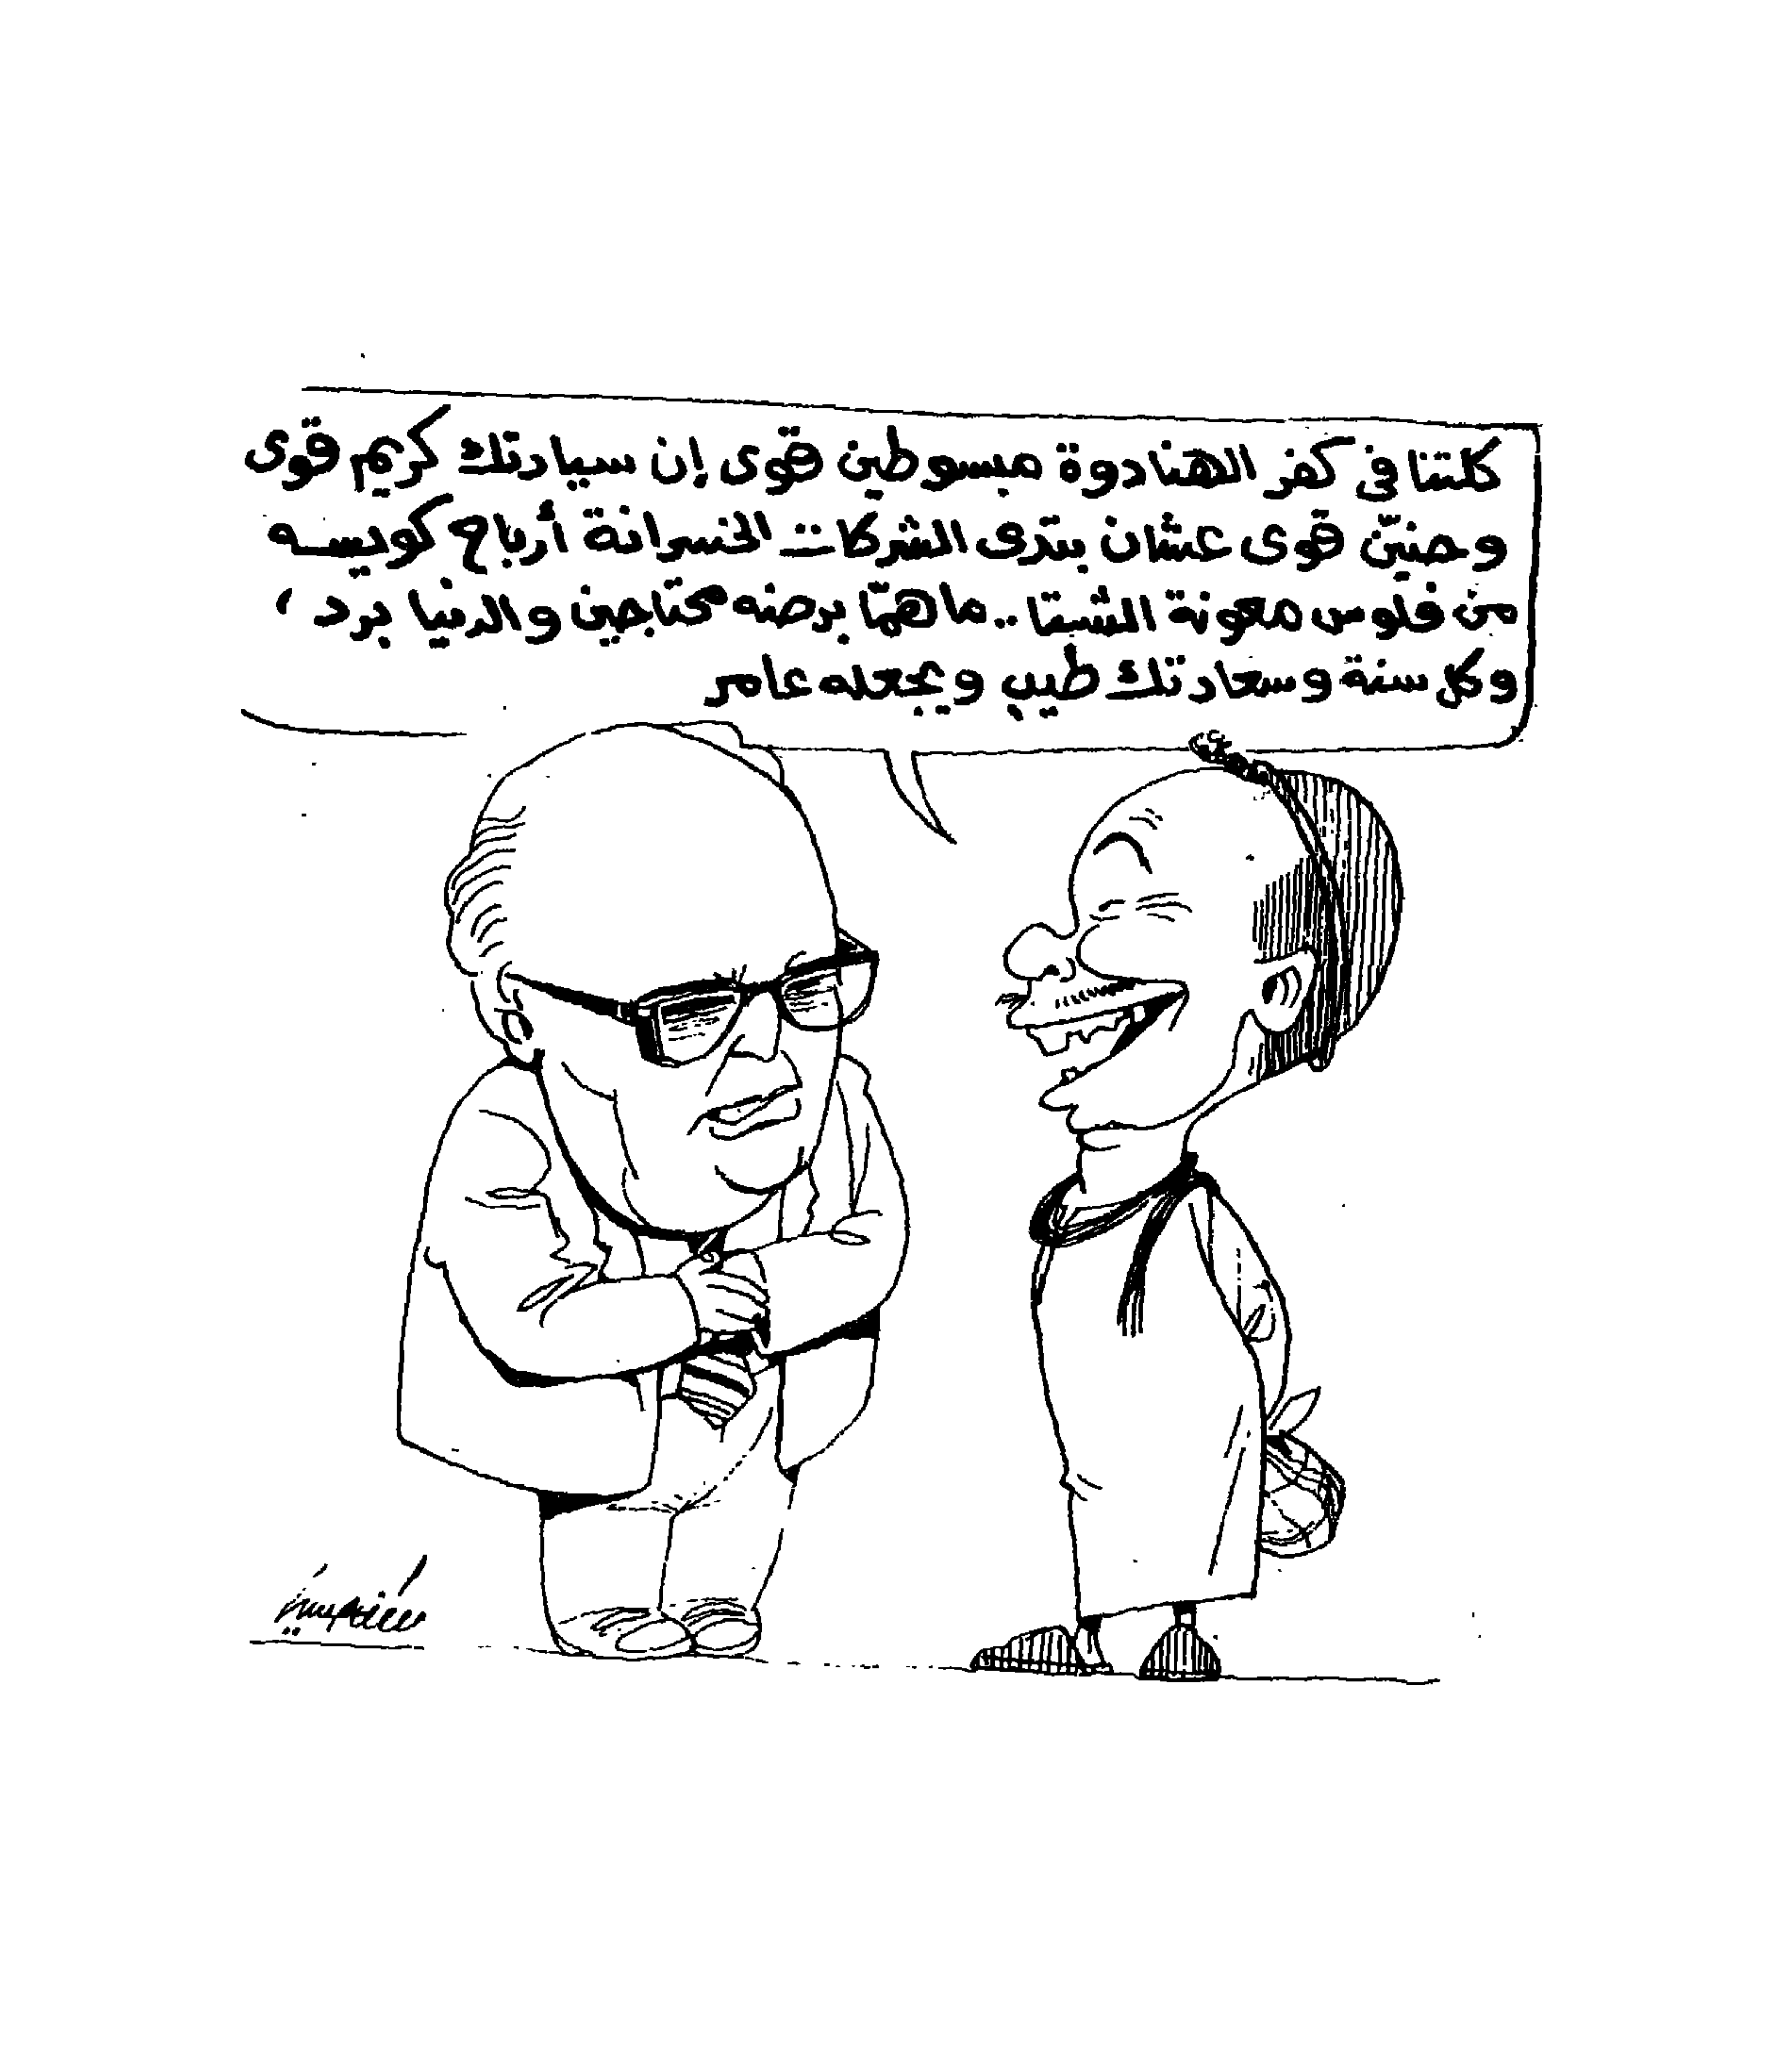 كلتنا فى كفر الهنادوة مبسوطين قوى إن سيادتك كريم قوى
وحنيّن قوى عشان بتدى الشركات الخسرانة أرباح كويسه
من فلوس معونة الشتا.. ما همّا برضه محتاجين والدنيا برد ،
وكل سنة وسعادتك طيب ويجعله عامر